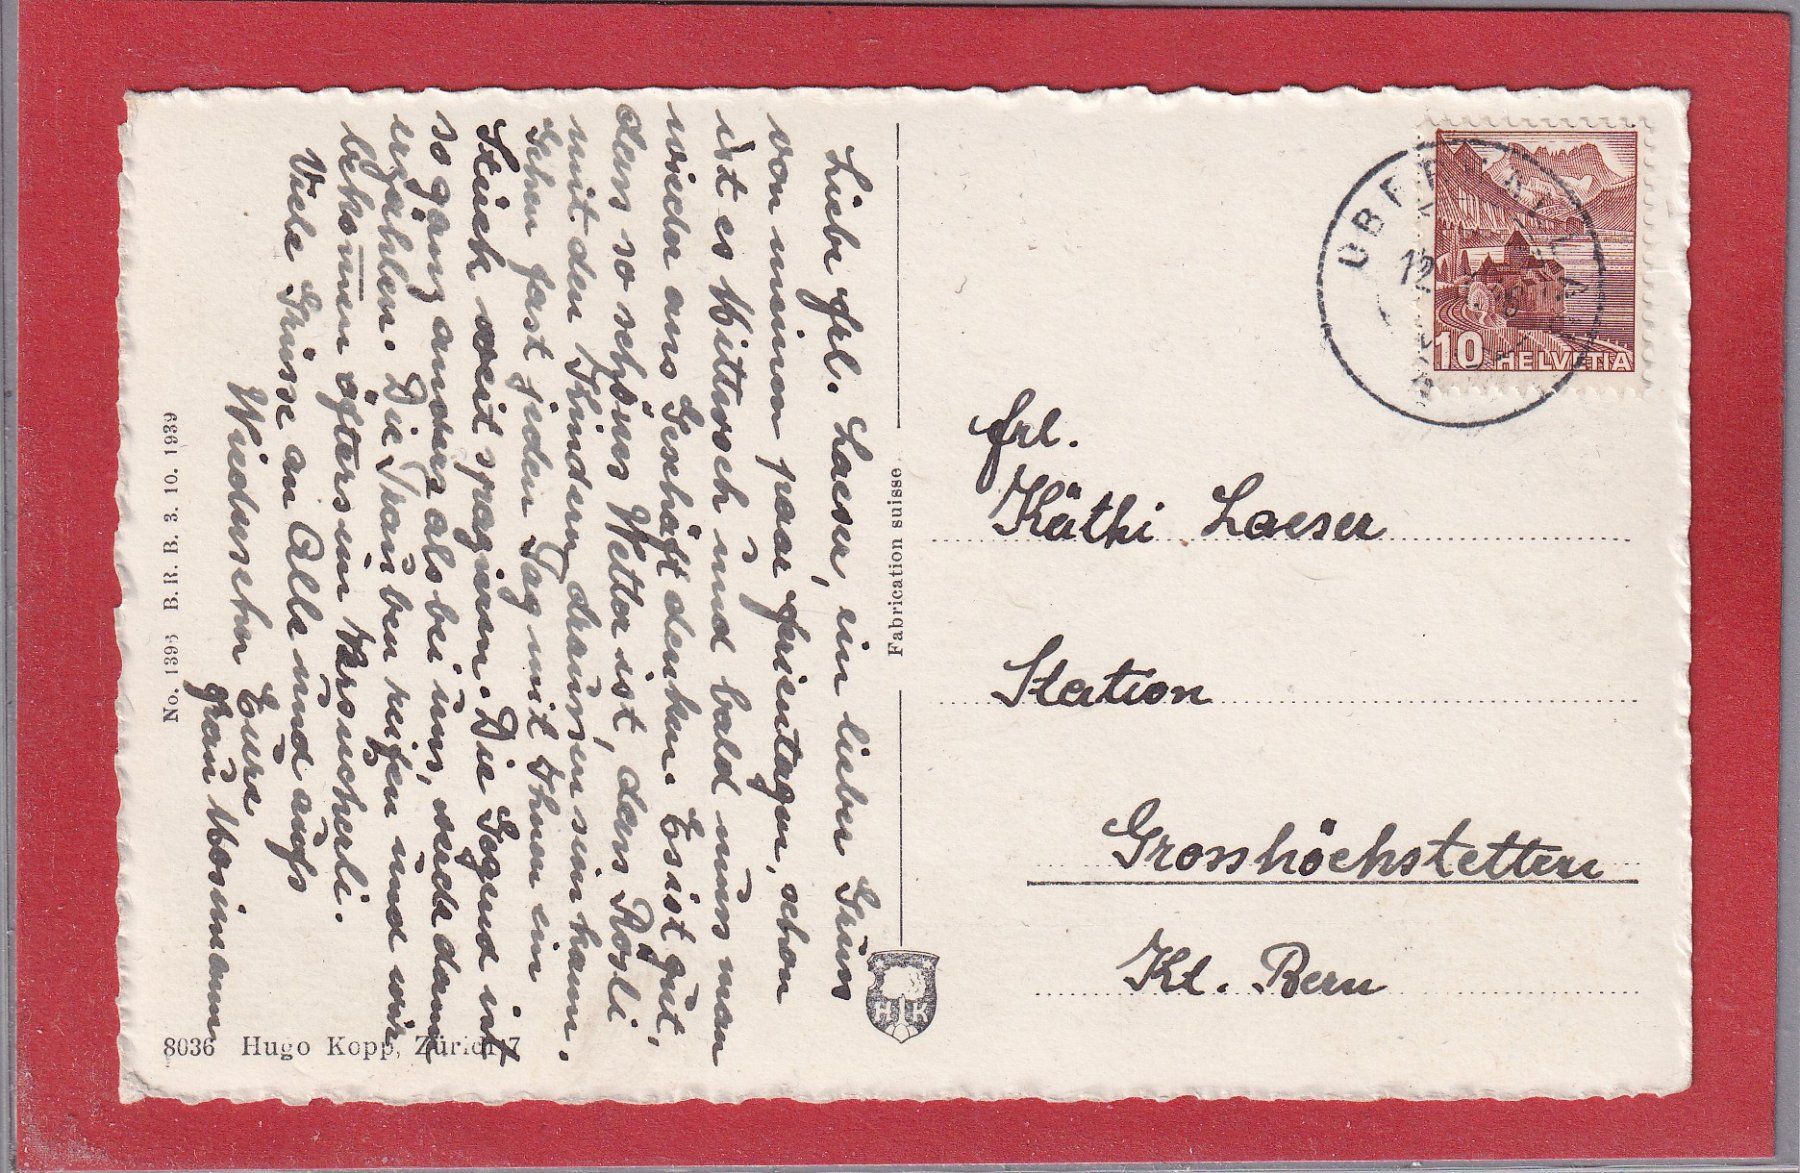 Liebe Frl. Laeser, ein lieber Gruss
von meinen paar Ferientagen, schon
ist es Mittwoch und bald muss man
wieder ans Geschäft denken. Es ist gut,
dass so schönes Wetter ist, dass Rösli
mit den Kindern draussen sein kann.
Gehen fast jeden Tag mit Ihnen ein
Stück weit spazieren. Die Gegend ist
so ganz anders als bei uns, werde dann
erzählen. Die Trauben reifen und wir
bekommen öfters im Versucherli.
Viele Grüsse an Alle und aufs
Wiedersehen Eure
Frau Mosimann
Frl.
Käthi Laeser
Station
Grosshöchstetten
Kt. Bern
10 HELVETIA
12
Fabrication suisse
HK
No. 1396 B. R. B. 3. 10. 1939
8036 Hugo Kopp, Zürich 7